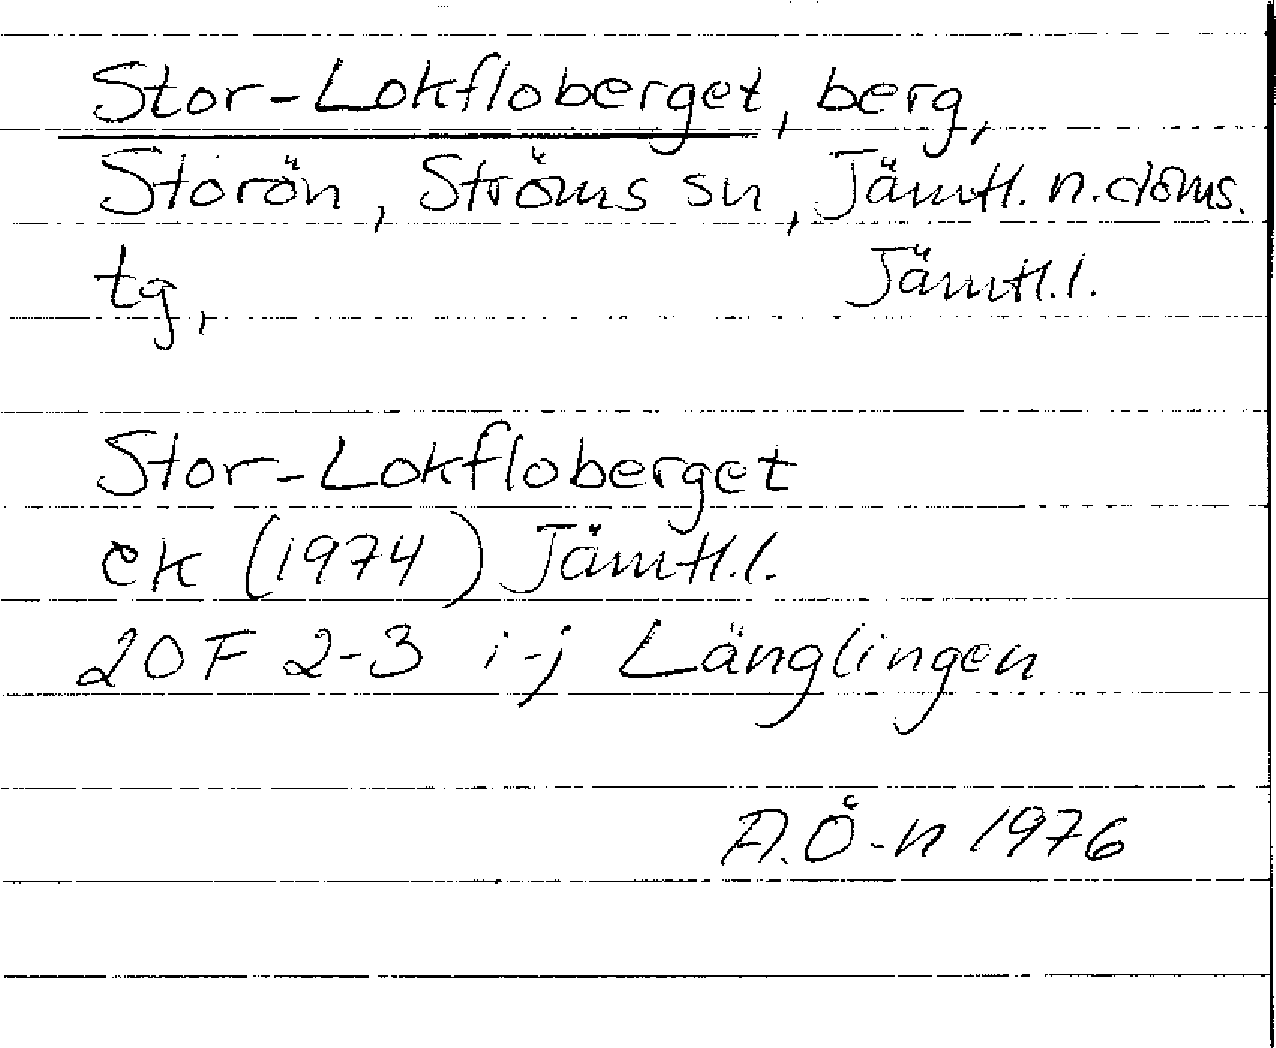 Stor-Lokfloberget, berg,
Storön, Ströms sn, Jämtl. n. doms.
tg, Jämtl.l.
Stor-Lokfloberget
ek (1974) Jämtl.l.
20F 2-3 i-j Länglingen
A.Ö-n 1976